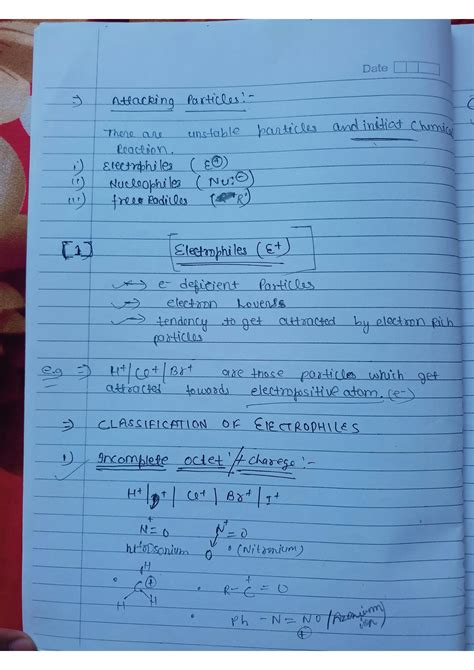 Date
⇒ Attacking Particles:-
There are unstable particles and initiat Chemica
Reaction.
i) Electrophiles (E⊕)
ii) Nucleophiles (Nu:⊖)
iii) free Radicles (R·)
[1] Electrophiles (E+)
→ e- deficient Particles
→ electron Loverls
→ tendency to get attracted by electron rich
particles
e.g ⇒ H+/Cl+/Br+ are those particles which get
attracted towards electropositive atom. (e-)
⇒ CLASSIFICATION OF ElECTROPHILES
1) Incomplete octet /+ charege :-
H+ | D+ | Cl+ | Br+ | I+
N+=O N+=O
O (Nitronium)
H C⊕ H H
R-C+=O
Ph -N=N⊕